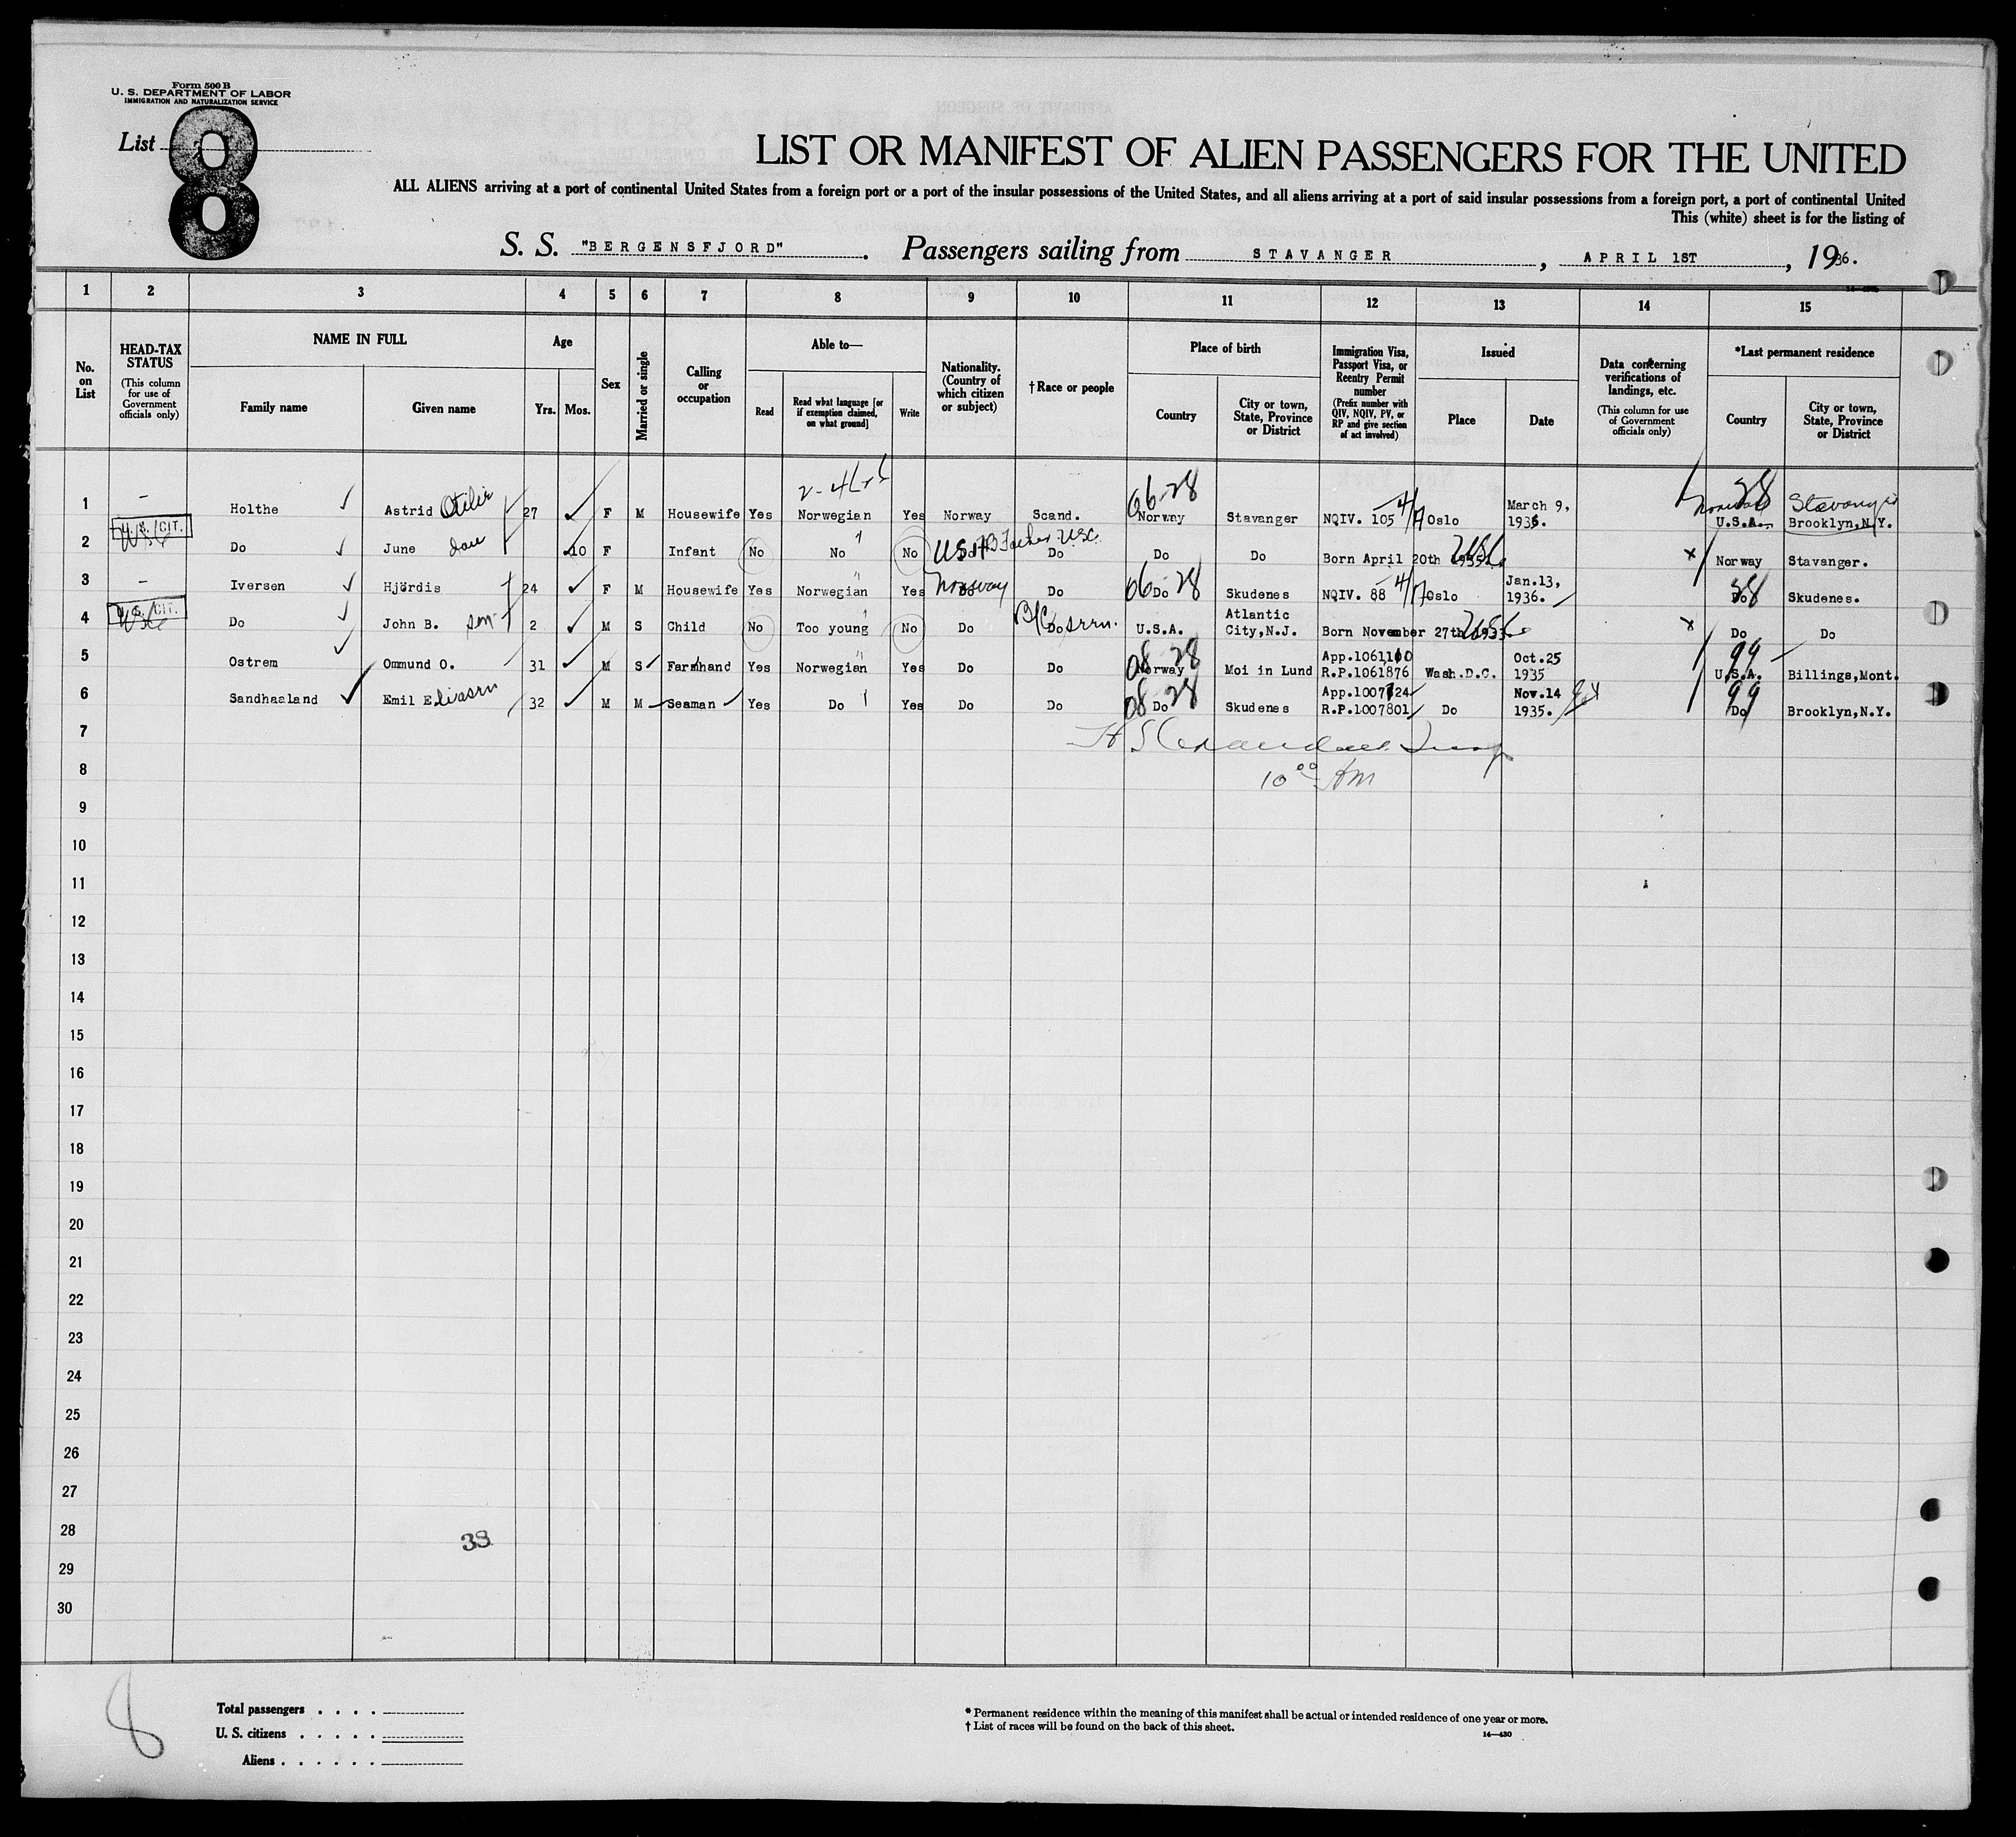 Form 500 B
U. S. DEPARTMENT OF LABOR
IMMIGRATION AND NATURALIZATION SERVICE
List 8
LIST OR MANIFEST OF ALIEN PASSENGERS FOR THE UNITED
ALL ALIENS arriving at a port of continental United States from a foreign port or a port of the insular possessions of the United States, and all aliens arriving at a port of said insular possessions from a foreign port, a port of continental United
This (white) sheet is for the listing of
S. S. "BERGENSFJORD". Passengers sailing from STAVANGER, APRIL 1ST, 1936.
1 2 3 4 5 6 7 8 9 10 11 12 13 14 15
No. on List
HEAD-TAX STATUS
(This column for use of Government officials only)
NAME IN FULL
Family name
Given name
Age
Yrs.
Mos.
Sex
Married or single
Calling or occupation
Able to—
Read
Read what language [or if exemption claimed, on what ground]
Write
Nationality. (Country of which citizen or subject)
†Race or people
Place of birth
Country
City or town, State, Province or District
Immigration Visa, Passport Visa, or Reentry Permit number
(Prefix number with QIV, NQIV, PV, or RP and give section of act involved)
Issued
Place
Date
Data concerning verifications of landings, etc.
(This column for use of Government officials only)
*Last permanent residence
Country
City or town, State, Province or District
1 – Holthe Astrid Otilie 27 F M Housewife Yes Norwegian Yes Norway Scand. 06-28 Norway Stavanger NQIV. 105 4/ Oslo March 9, 1936. Norway 28 U.S.A. Stavanger Brooklyn,N.Y.
2 U.S. CIT. USC Do June dau 10 F Infant No No No USA Father USC Do Do Do Born April 20th 1935. USC x Norway Stavanger.
3 – Iversen Hjördis 24 F M Housewife Yes Norwegian Yes Norway Do 06-28 Do Skudenes NQIV. 88 4/ Oslo Jan.13, 1936. 28 Do Skudenes.
4 U.S. CIT. USC Do John B. son 2 M S Child No Too young No Do Do U.S.A. Atlantic City,N.J. Born November 27th 1933 USC x Do Do
5 Ostrem Ommund O. 31 M S Farmhand Yes Norwegian Yes Do Do 08 28 Norway Moi in Lund App.1061100 R.P.1061876 Wash.D.C. Oct.25 1935 99 U.S.A. Billings,Mont.
6 Sandhaaland Emil Eliason 32 M M Seaman Yes Do Yes Do Do 08-28 Do Skudenes App.1007724 R.P.1007801 Do Nov.14 1935. 99 Do Brooklyn,N.Y.
7
8 10 00 AM
9
10
11
12
13
14
15
16
17
18
19
20
21
22
23
24
25
26
27
28 38
29
30
8
Total passengers . . . .
U. S. citizens . . . . .
Aliens . . . . . .
* Permanent residence within the meaning of this manifest shall be actual or intended residence of one year or more.
† List of races will be found on the back of this sheet.
14—430